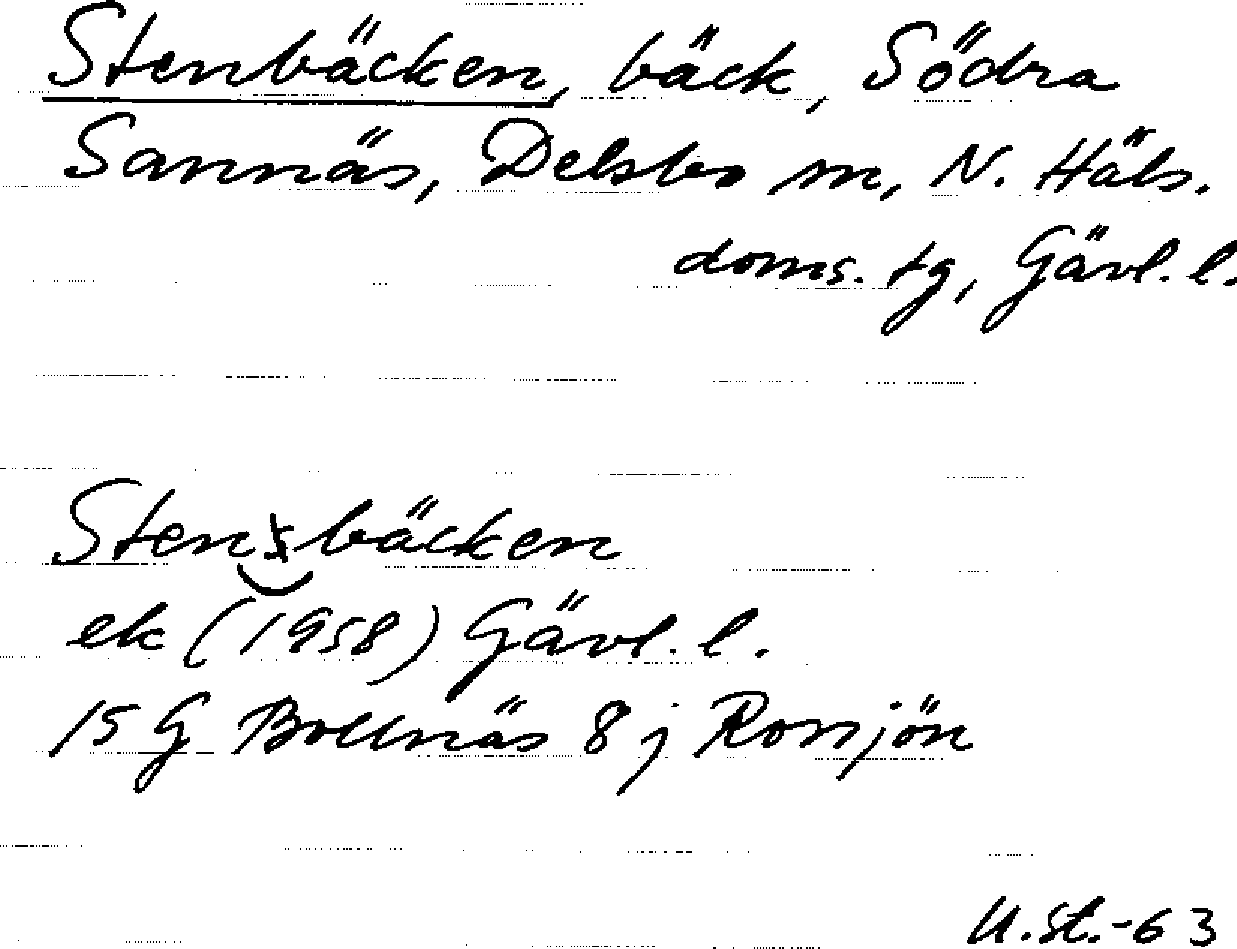 Stenbäcken, bäck, Södra
Sannäs, Delsbo sn, N. Häls.
doms. tg, Gävl. l.
Stensbäcken
ek (1958) Gävl. l.
15 G Bollnäs 8 j Rorsjön
U. St. -63